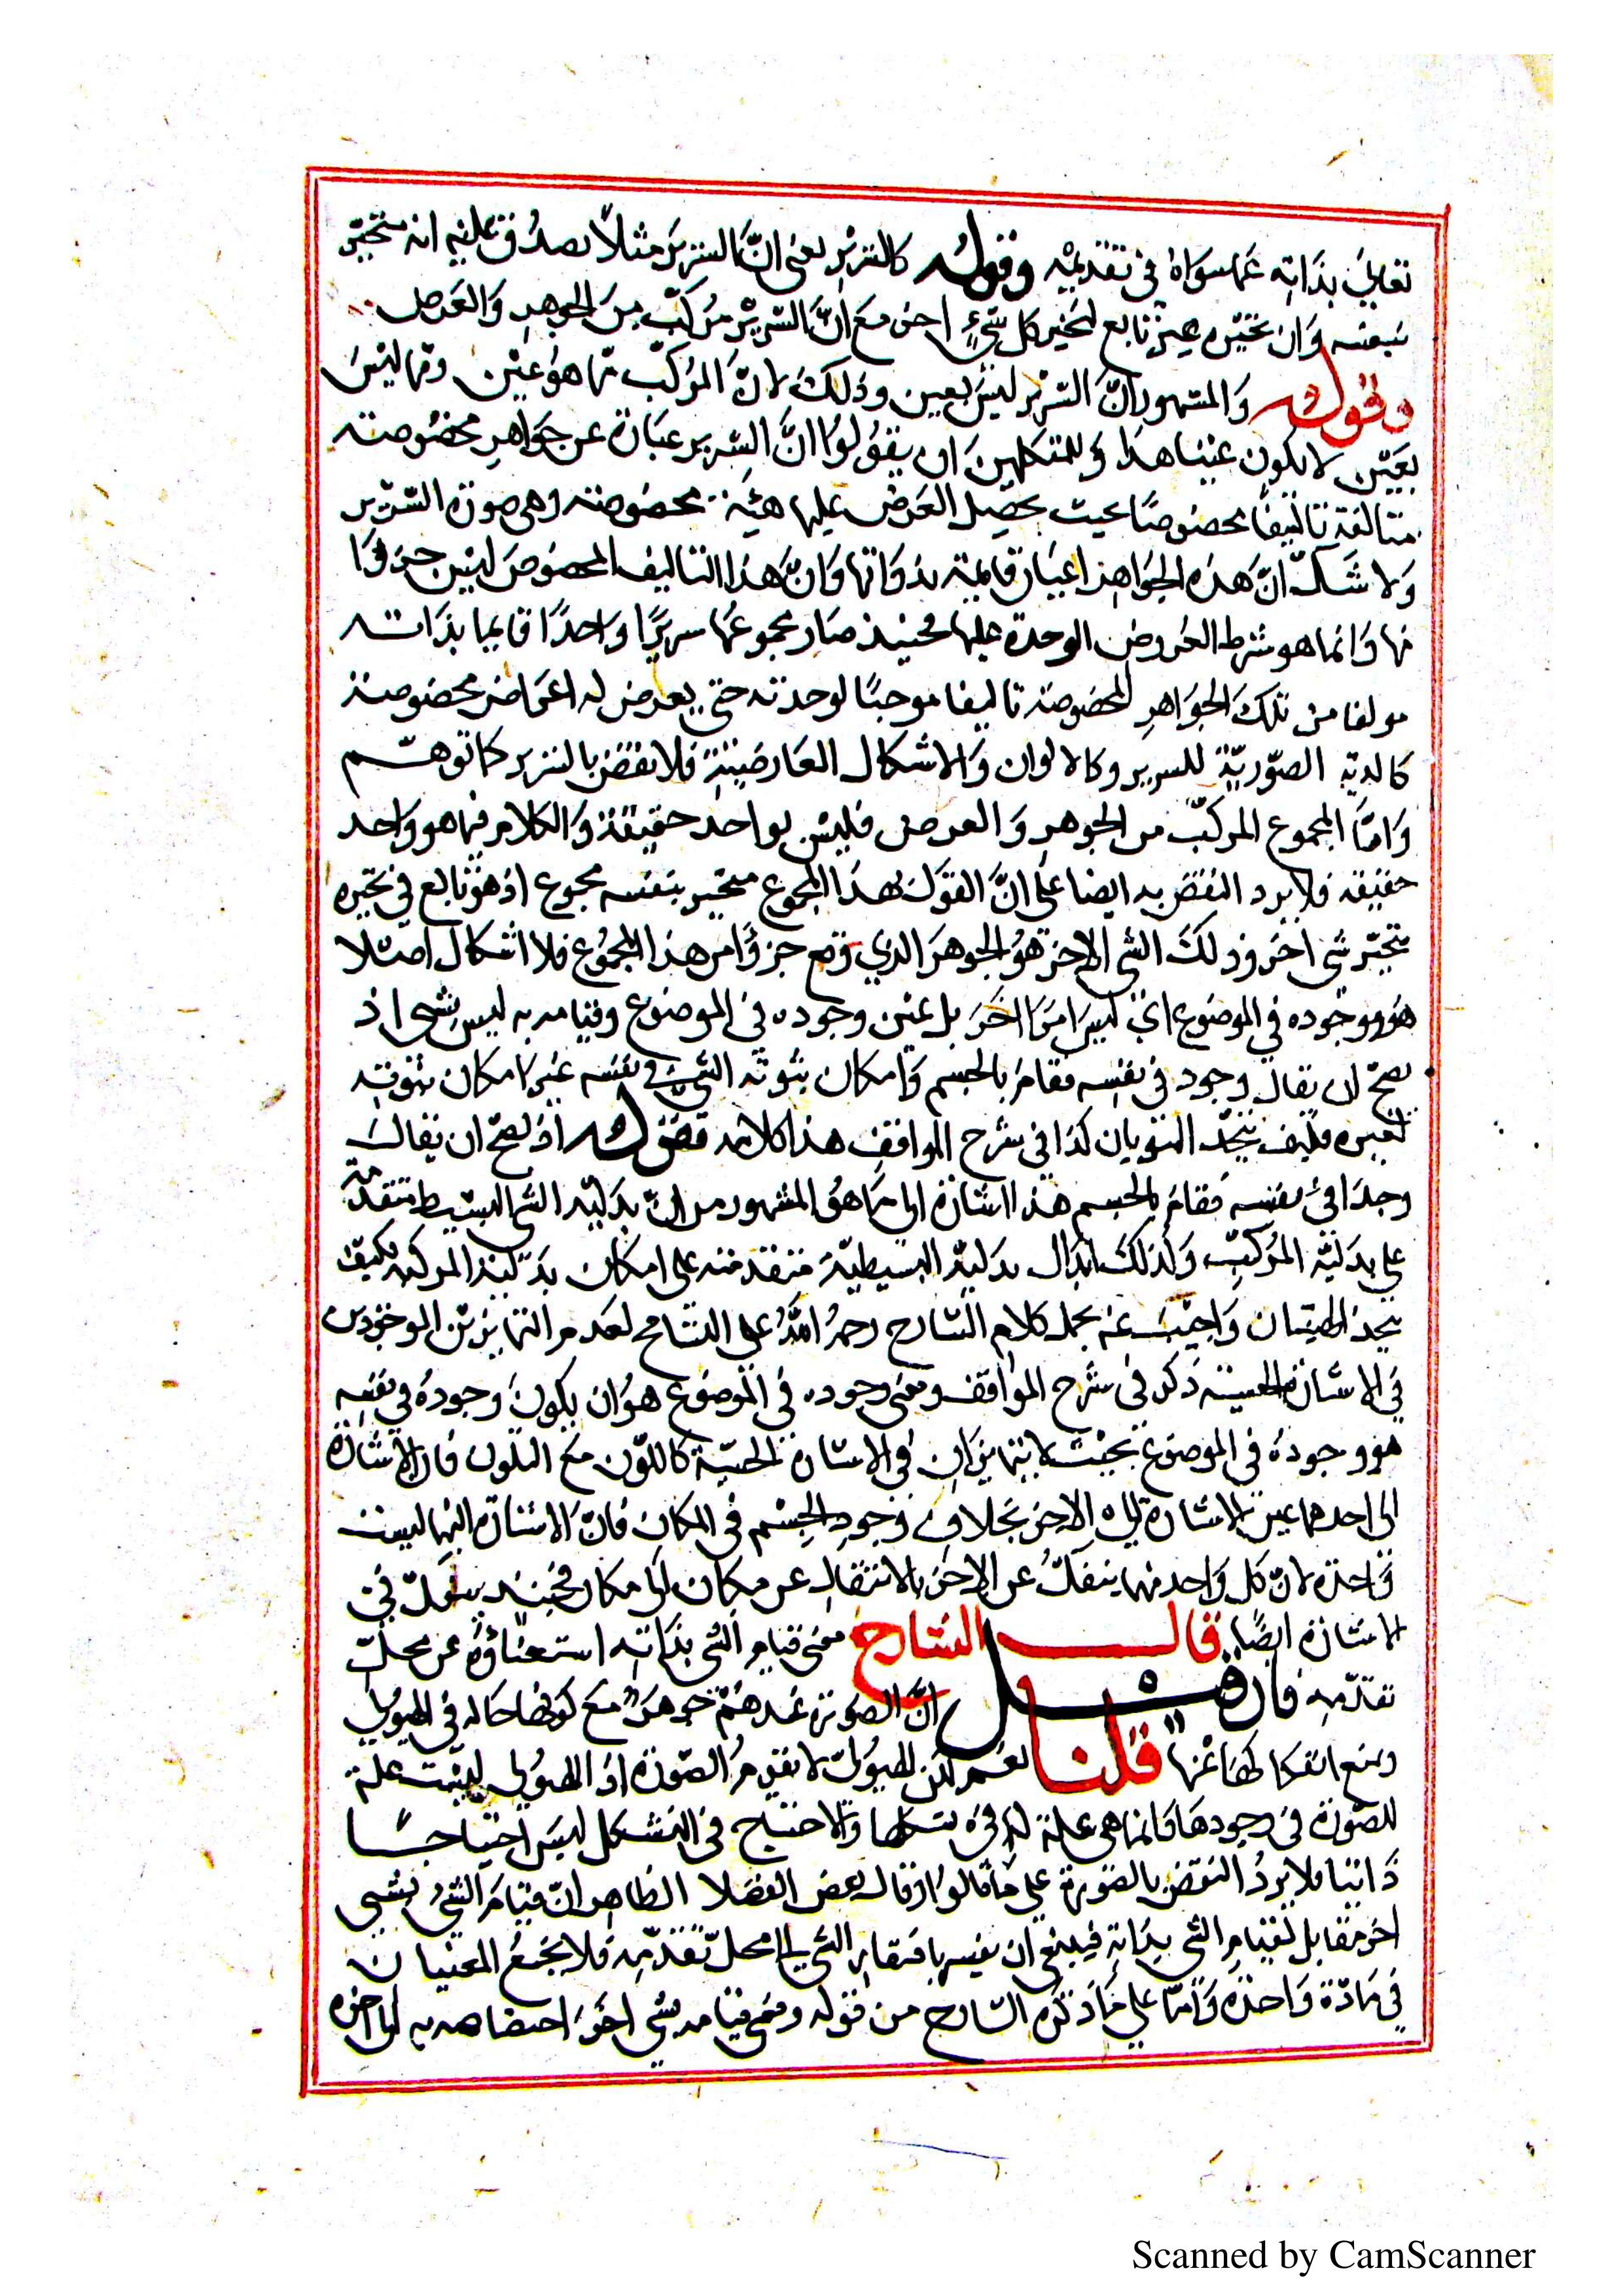 تعالى بذاته عما سواه في تقدمه وقوله كالسرير يعنى ان السرير مثلا يصدق عليه انه متحيز
بنفسه وان تحيزه غير تابع لتحيز كل شيء اخر مع ان السرير مركب من الجوهر والعرض
وقوله والمشهور ان السرير ليس بعين وذلك لان المركب مما هو عين ومما ليس
بعين لا يكون عينا هذا وللمتكلمين ان يقولوا ان السرير عبارة عن جواهر مخصوصة
متالفة تاليفا مخصوصا بحيث يحصل العرض عليها هيئة مخصوصة وهي صورة السرير
ولا شك ان هذه الجواهر اعيان قايمة بذواتها وان هذا التاليف المخصوص ليس جزوا
منها وانما هو شرط العروض الوحدة عليها فحينئذ صار مجموعها سريرا واحدا قايما بذاته
مولفا من تلك الجواهر المخصوصة تاليفا موجبا لوحدته حتى يعرض له اعراض مخصوصة
الصورية للسرير وكالالوان والاشكال العارضية فلا نقض بالسرير كما توهم
واما المجموع المركب من الجوهر والعرض فليس بواحد حقيقة والكلام فيما هو واحد
حقيقة فلا يرد النقض به ايضا على ان القول بهذا المجموع متحيز بنفسه مجموع اذ هو تابع في تحيزه
بتحيز شي اخر وذلك الشي الاخر هو الجوهر الذي وقع جزوا من هذا المجموع فلا اشكال اصلا
هو وجوده في الموضوع اي ليس امرا اخر بل عين وجوده في الموضوع وقيامه به ليس بشي اذ
يصح ان يقال وجود في نفسه فقام بالجسم وامكان ثبوته الشي في نفسه غير امكان ثبوته
لغيره فكيف يتحد الثبوتان كذا في شرح المواقف هذا كلامه فقوله اذ يصح ان يقال
وجد في نفسه فقام بالجسم هذا اشارة الى ما هو المشهور من ان الشي البسيط متقدمة
على المركب ولذلك البسيطية متقدمة على امكان المركبة فكيف
يتحد واجيب عنه بحمل كلام الشارح رحمه الله على التسامح لعدم التمايز بين الموجودين
في الاشارة الحسية ذكر في شرح المواقف ومعنى وجوده في الموضوع هو ان يكون وجوده في نفسه
هو وجوده في الموضوع بحيث لا يتمايزان في الاشارة الحسية كاللون مع المتلون فان الاشارة
الى احدهما عين الاشارة الى الاخر بخلاف وجود الجسم في المكان فان الاشارة اليهما ليست
واحدة لان كل واحد منهما ينفك عن الاخر بالانتقال عن مكان الى مكان فحينئذ في
الاشارة ايضا قال الشارح معنى قيام الشي بذاته استغناؤه عن محل
تقدمه فان قيل ان الصورة عندهم جوهر مع كونها حالة في الهيولى
ويمنع انفكاكها عنها قلنا نعم لكن الهيولى لا تقدم الصورة اذ الهيولى ليست علة
للصورة في وجودها فانما هي علة لها في تشكلها والاحتياج في التشكل ليس احتياجا
ذاتيا فلا يرد النقض بالصورة على ما قالوا وقال بعض الفضلا الظاهر ان قيام الشي بشي
اخر مقابل لقيام الشي بذاته فينبغي ان يفسر بافتقار الشي الى محل تقدمه فلا يجتمع المعنيان
في مادة واحدة واما على ما ذكره الشارح من قوله ومعنى قيامه بشي اخر اختصاصه به الى اخره
Scanned by CamScanner